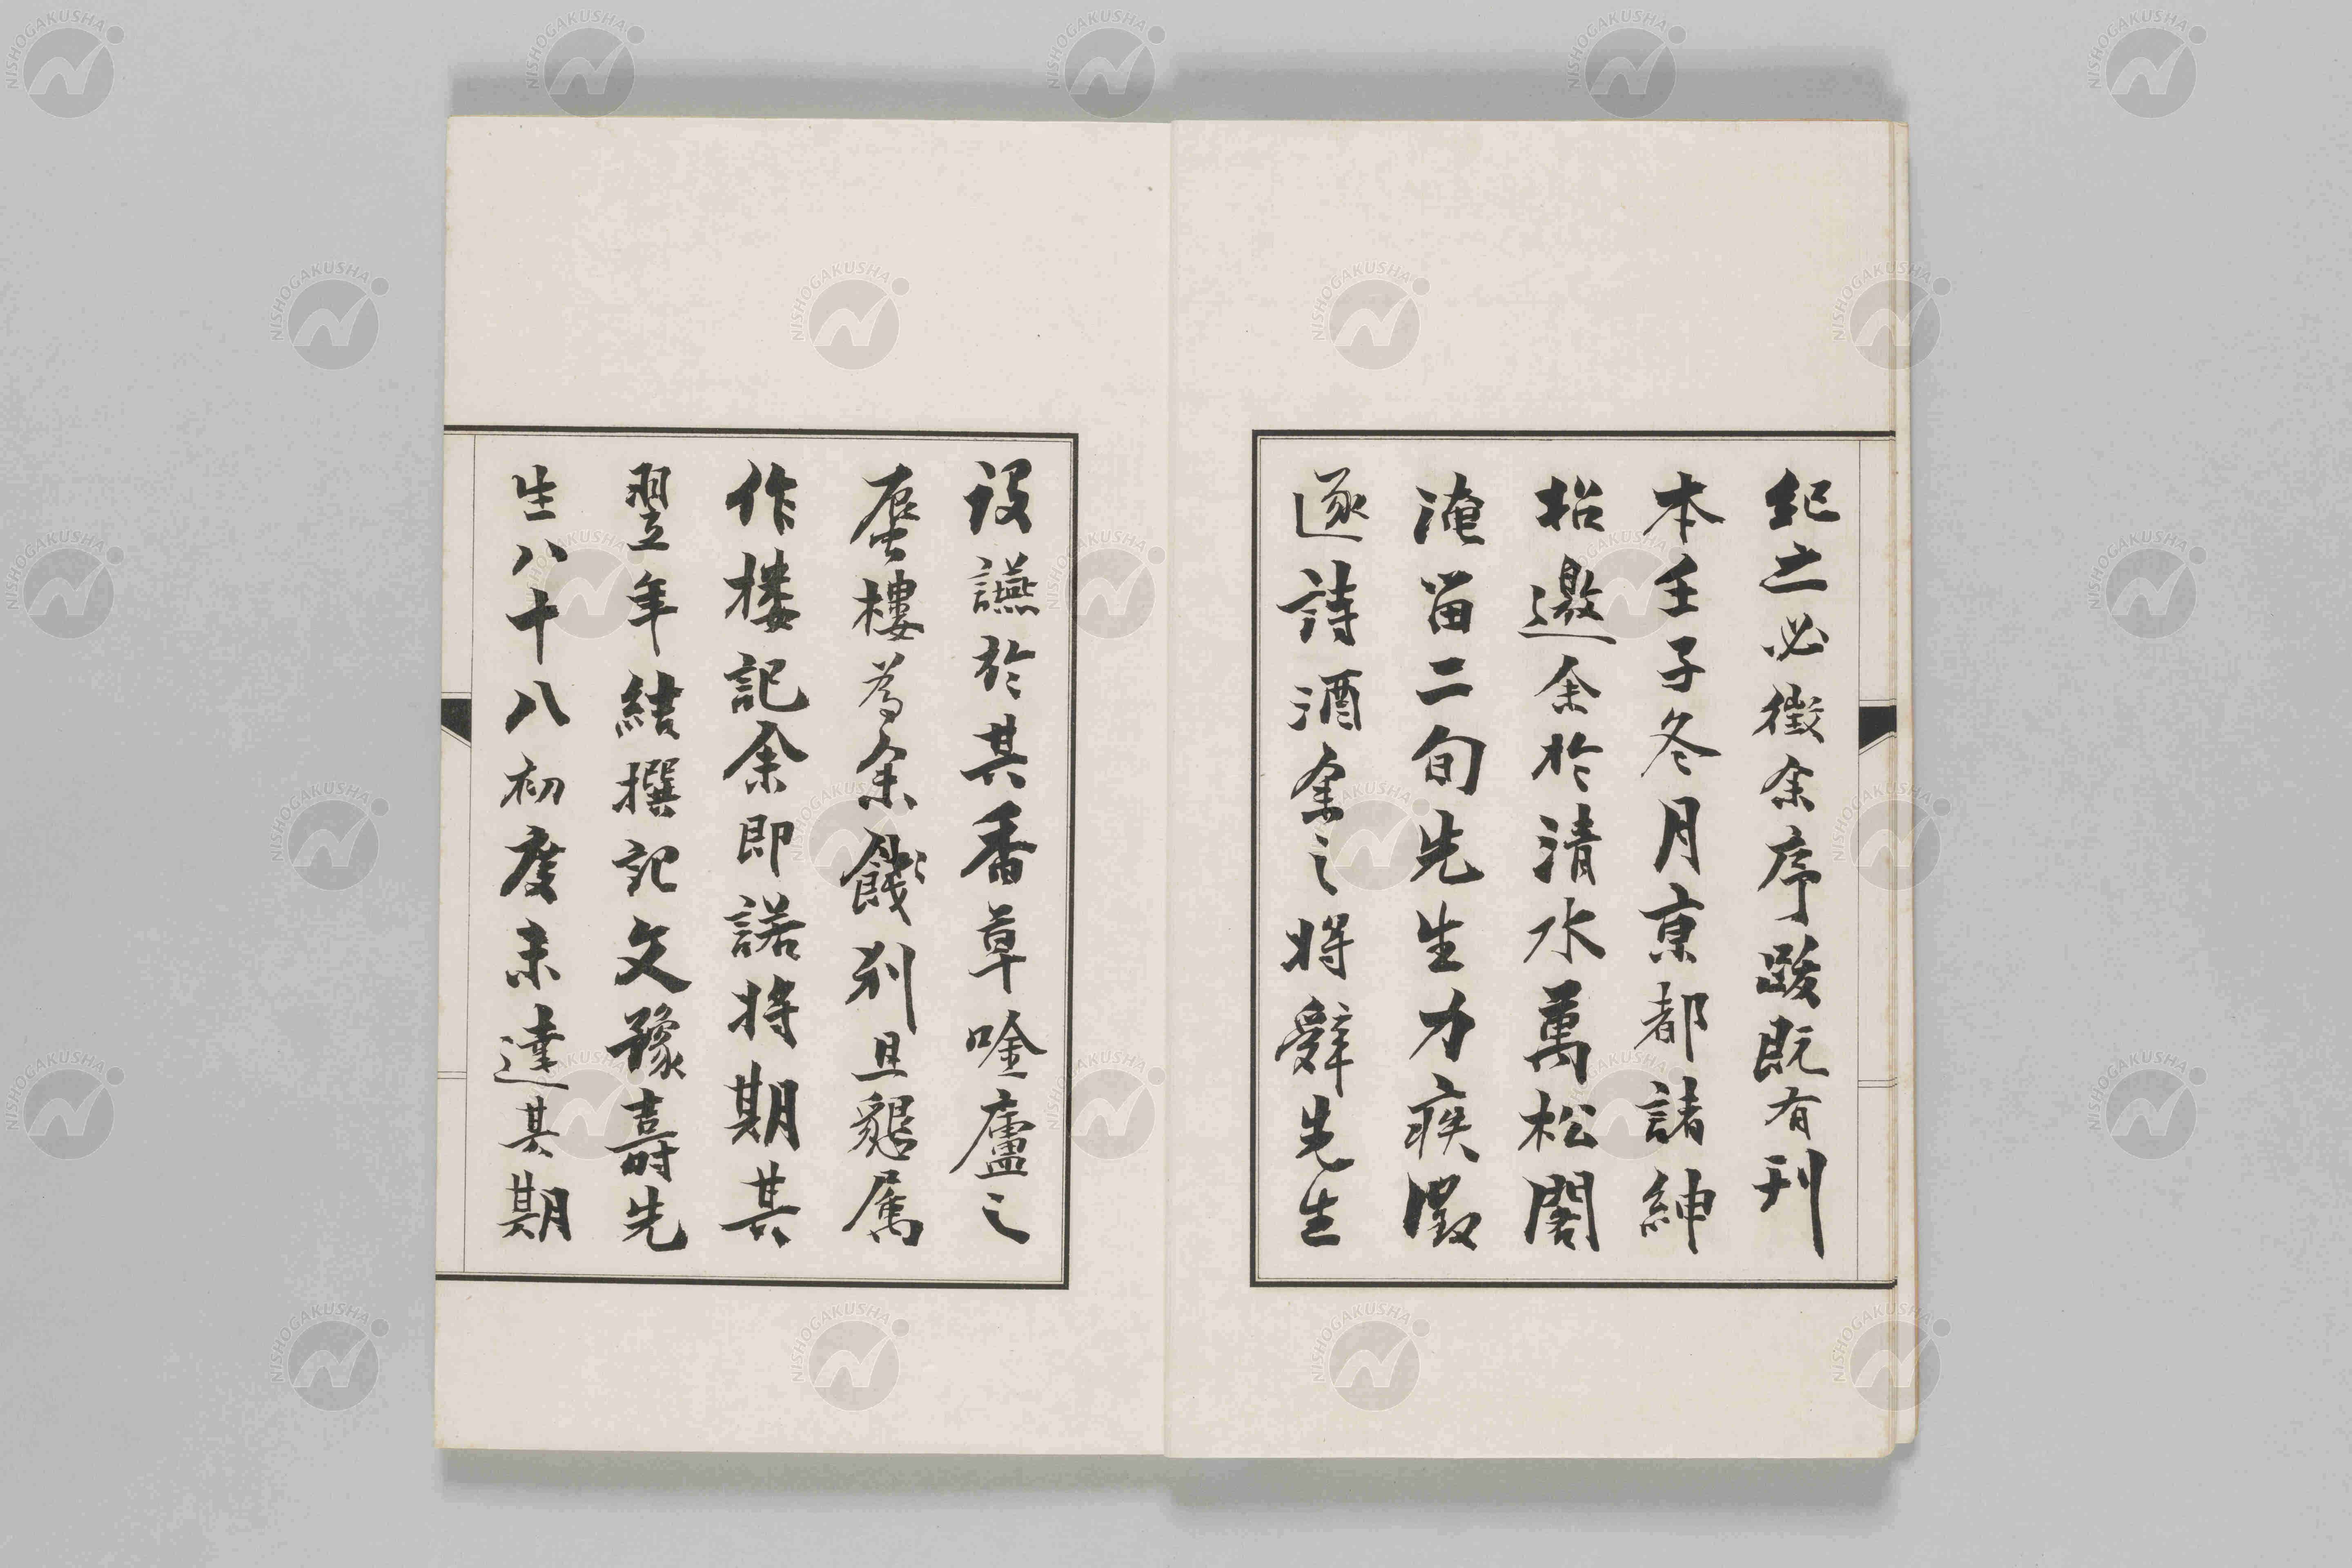 紀之必徵余序跋既有刊
本壬子冬月京都諸紳
招邀余於清水萬松閣
淹留二旬先生力疾徵
逐詩酒余之将辭先生
设讌於其香草唫廬之
蜃樓為余餞别且懇属
作楼記余即諾将期其
翌年結撰記文豫壽先
生八十八初度未達其期
NISHOGAKUSHA